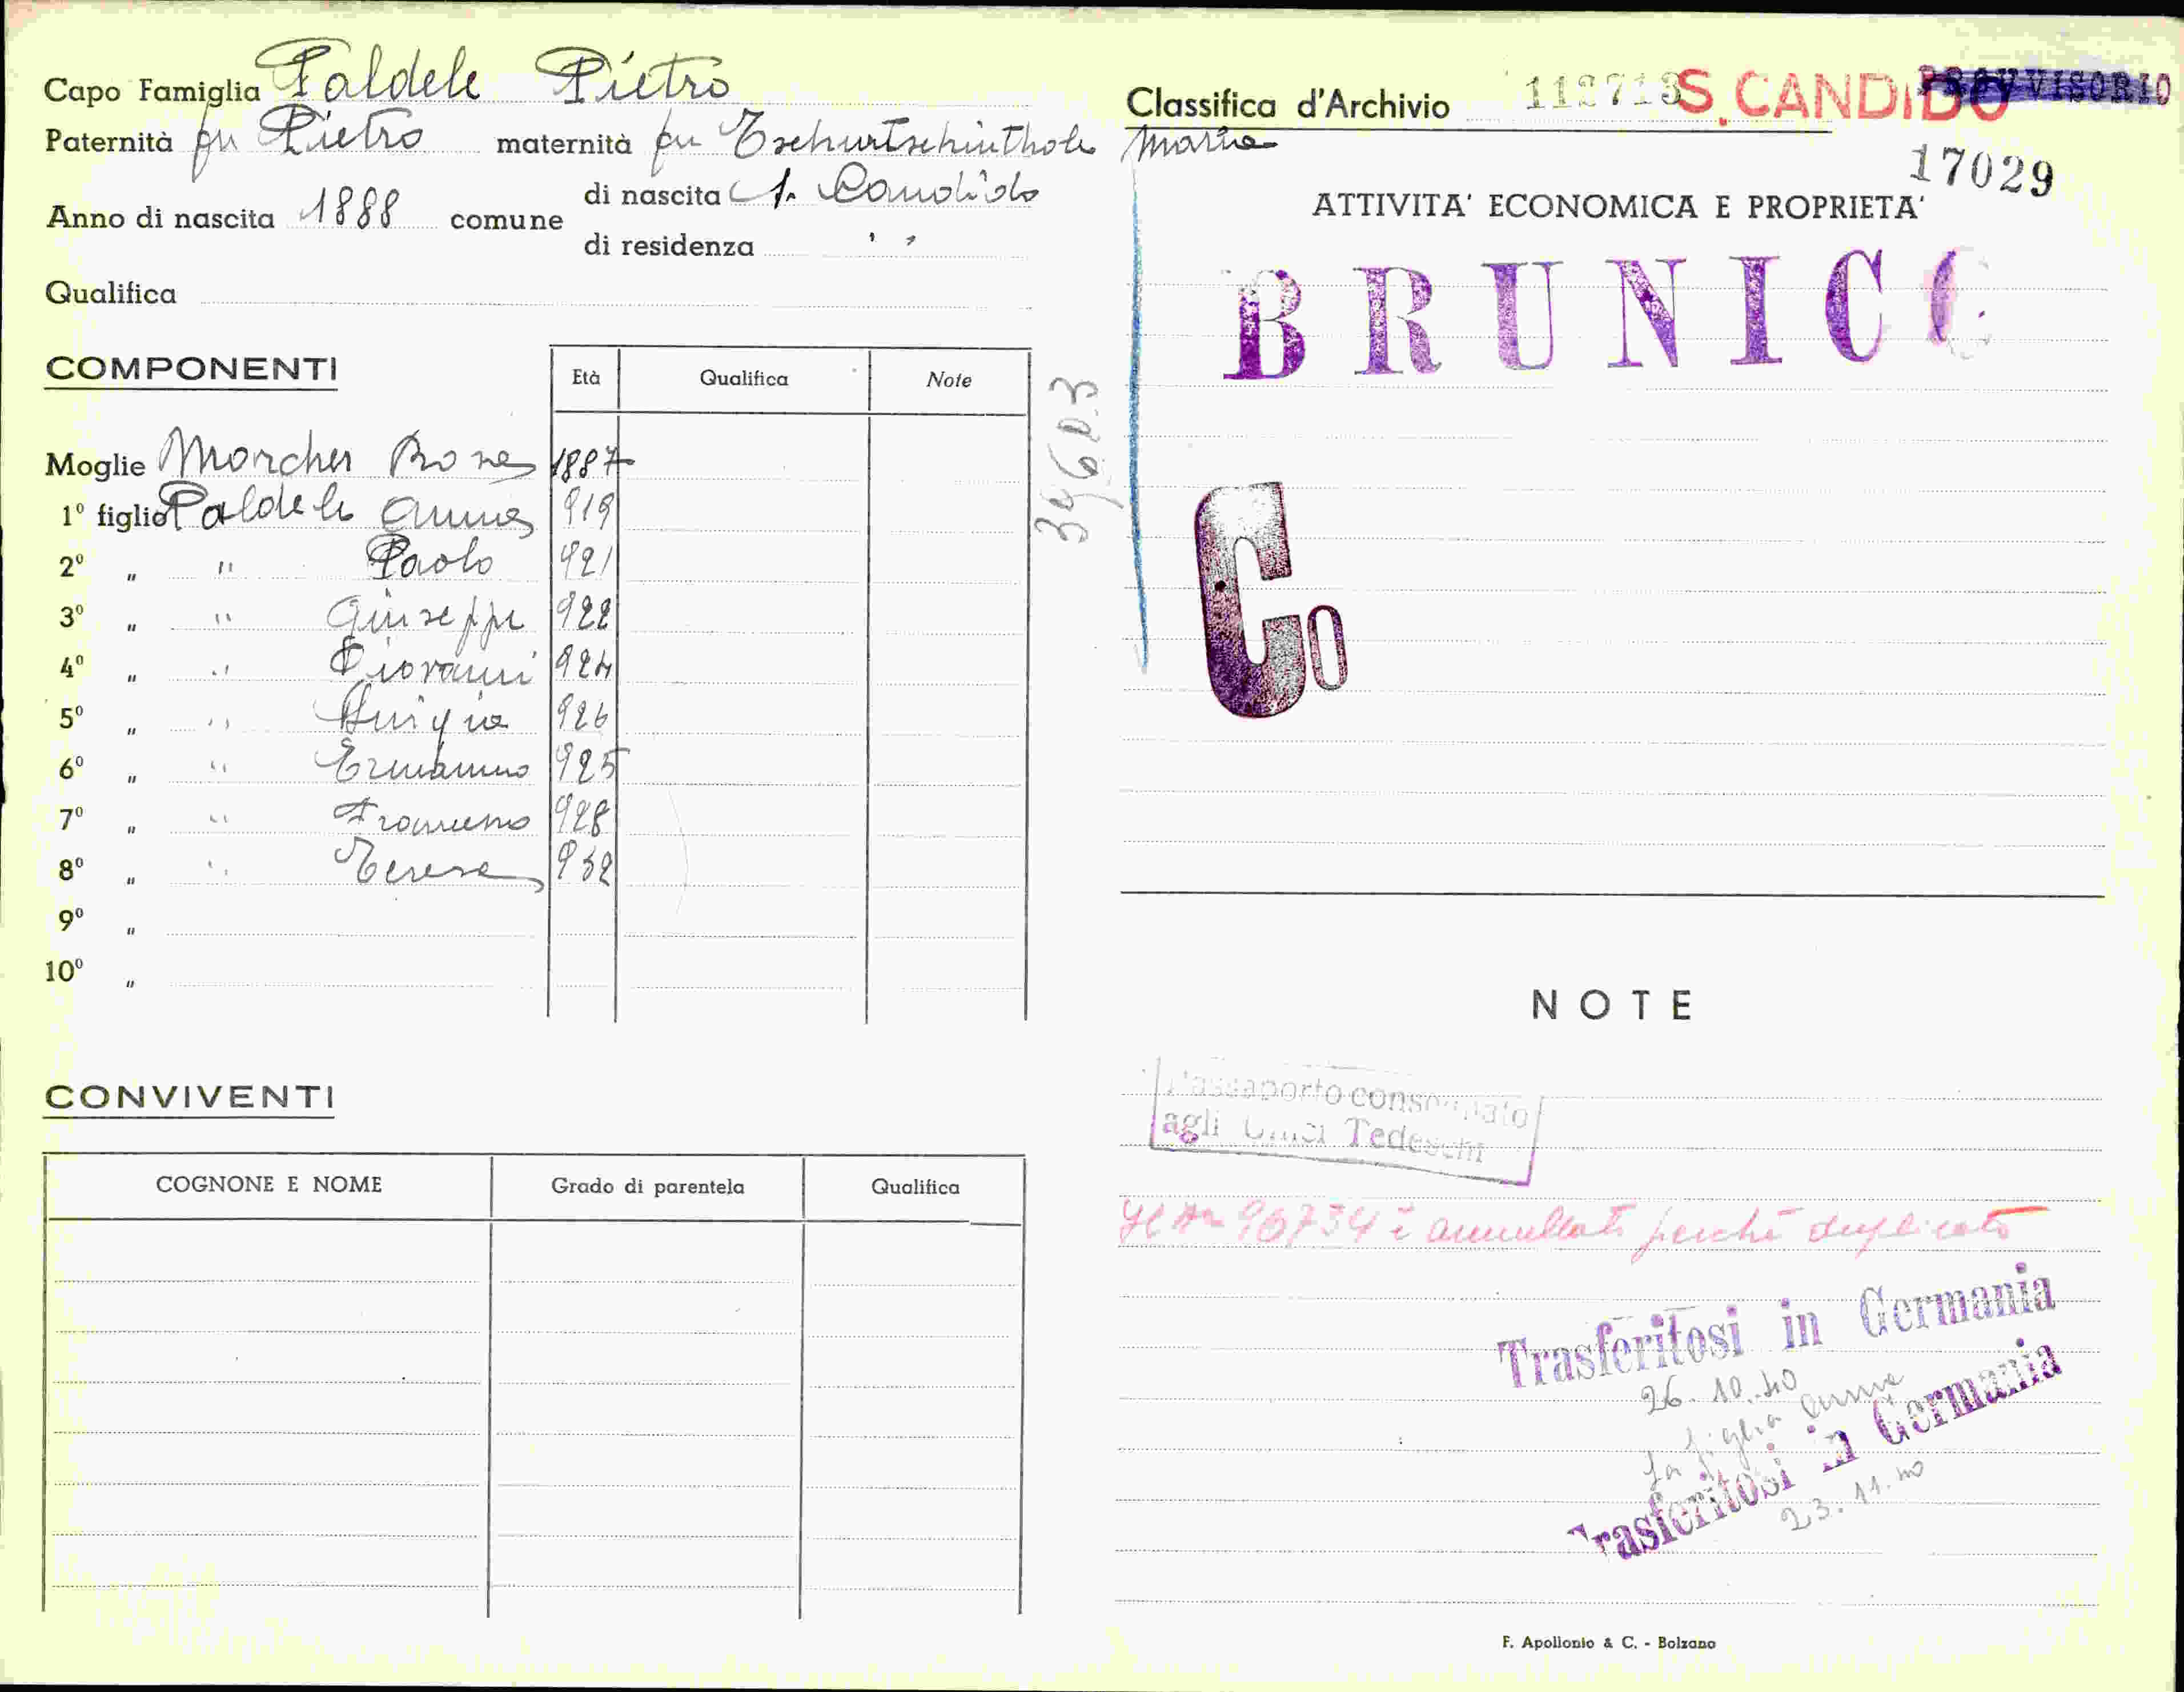 Capo Famiglia Paldele Pietro
Paternità fu Pietro maternità fu Tschurtschenthaler Maria
Anno di nascita 1888 comune di nascita S. Candido
di residenza " "
Qualifica
COMPONENTI
Età Qualifica Note
Moglie Morcher Rosa 1887
1º figlio Paldele Anna 919
2º " " Paolo 921
3º " " Giuseppe 922
4º " " Giovanni 924
5º " " Luigia 926
6º " " Ermanno 925
7º " " 928
8º " " Teresa 932
9º "
10º "
CONVIVENTI
COGNONE E NOME Grado di parentela Qualifica
34603
Classifica d'Archivio 112713 S. CANDIDO PROVVISORIO
17029
ATTIVITA' ECONOMICA E PROPRIETA'
BRUNICO
Co
NOTE
Passaporto consegnato
agli Uffici Tedeschi
Il n 96734 è annullato perchè duplicato
Trasferitosi in Germania
26.10.40
la figlia Anna
Trasferitosi in Germania
23.11.40
F. Apollonio & C. - Bolzano